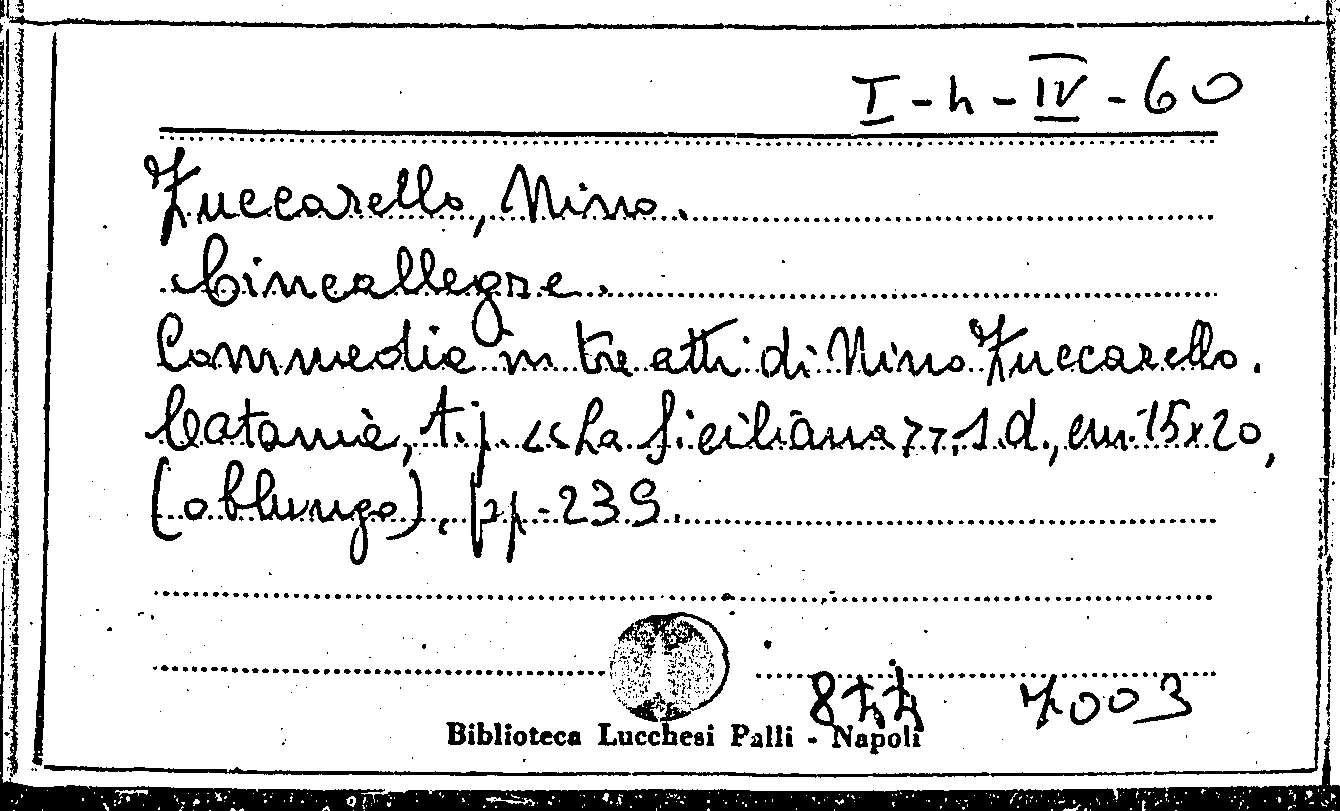 I-h-IV-60
Zuccarello, Nino.
Cincallegre.
Commedia in tre atti di Nino Zuccarello.
Catania, tip. <<La Siciliana>>, s.d., cm. 15x20,
(oblungo). pp. 239.
7003
Biblioteca Lucchesi Palli - Napoli